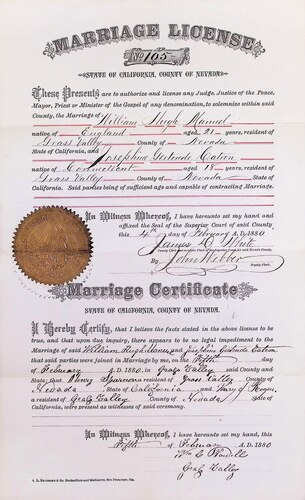 MARRIAGE LICENSE
No 105
STATE OF CALIFORNIA, COUNTY OF NEVADA.
These Presents are to authorize and license any Judge, Justice of the Peace,
Mayor, Priest or Minister of the Gospel of any denomination, to solemnize within said
County, the Marriage of William Hugh
native of England aged 21 years, resident of
Grass Valley County of Nevada
State of California, and Josephine Gertrude Eaton
native of Connecticut aged 18 years, resident of
Grass Valley County of Nevada State of
California. Said parties being of sufficient age and capable of contracting Marriage.
In Witness Whereof, I have hereunto set my hand and
affixed the Seal of the Superior Court of said County
this 4th day of February A.D. 1880
James D. White
By John Webber
Marriage Certificate
STATE OF CALIFORNIA, COUNTY OF NEVADA.
I Hereby Certify, that I believe the facts stated in the above license to
be true, and that upon due inquiry, there appears to be no legal impediment to
the Marriage of said William Hugh and Josephine Gertrude Eaton
that said parties were joined in Marriage by me, on the Fifth day
of February A.D. 1880, in Grass Valley said County and
State; that a resident of Grass Valley County of
Nevada State of California and Mary
a resident of Grass Valley County of Nevada State of
California, were present as witnesses of said ceremony.
In Witness Whereof, I have hereunto set my hand, this
Fifth day of February A.D. 1880
Grass Valley